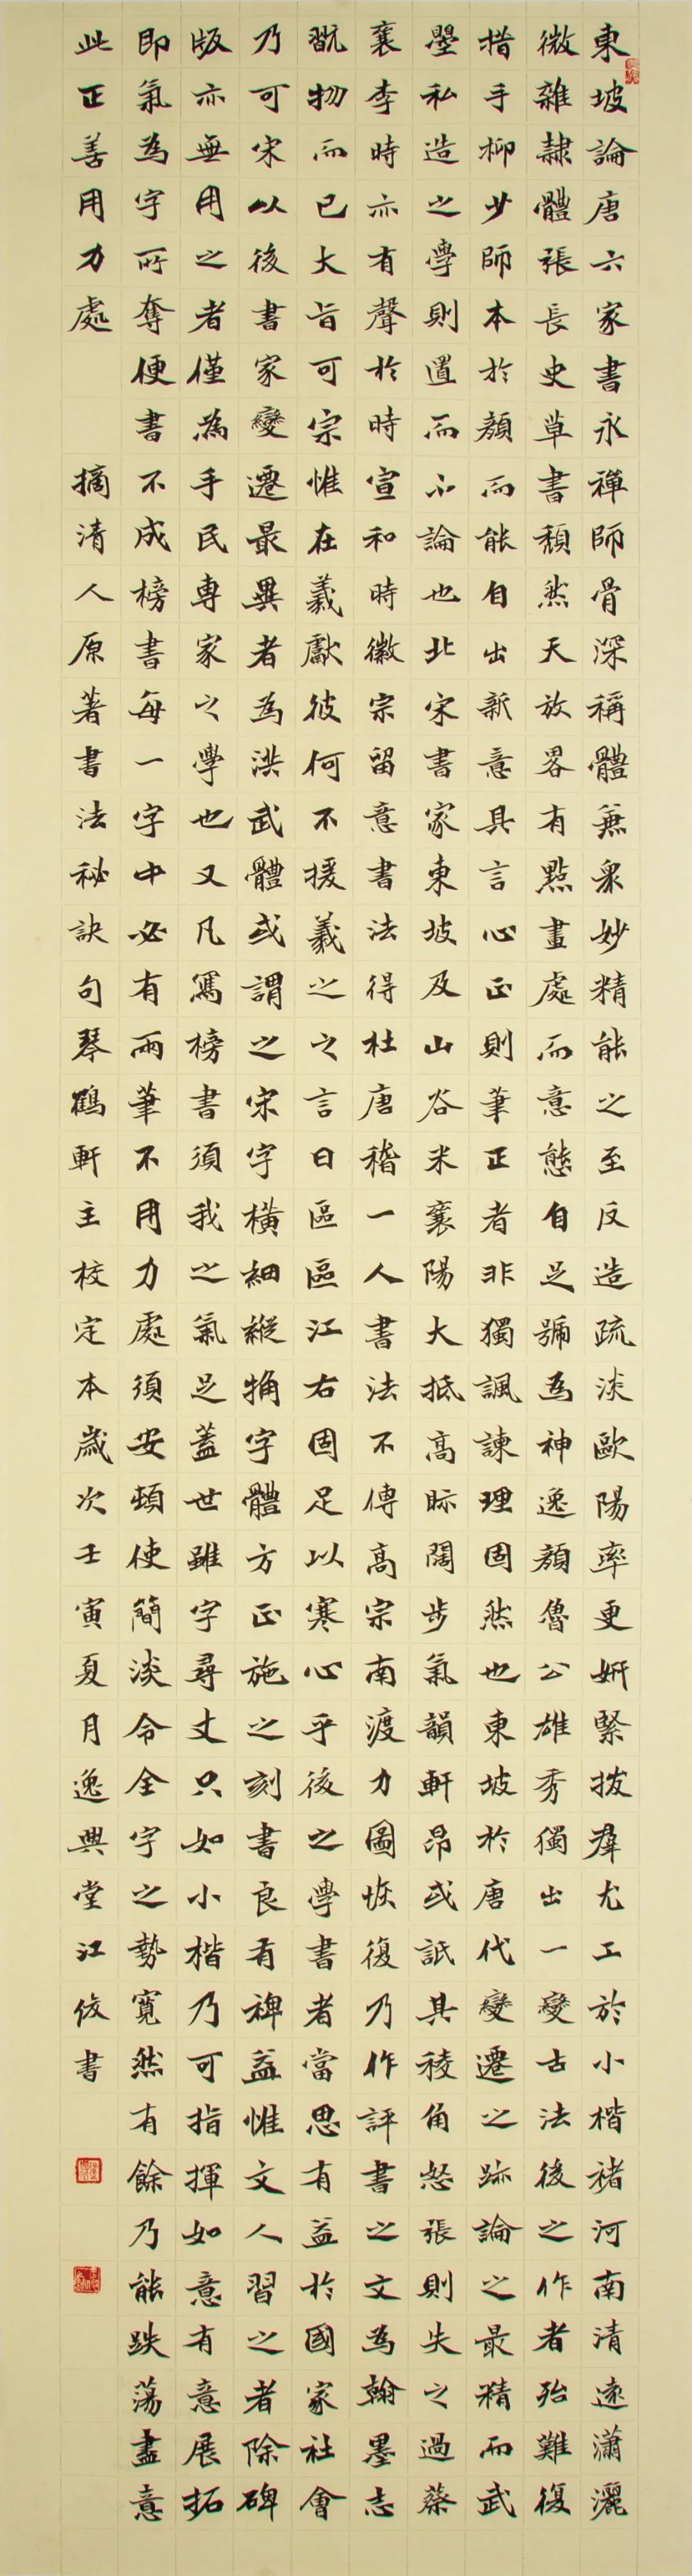 東坡論唐六家書永禪師骨深穩體兼衆妙精能之至反造疏淡歐陽率更妍緊拔羣尤工於小楷褚河南清遠瀟灑
微雜隸體張長史草書頹然天放畧有點畫處而意態自足號為神逸顏魯公雄秀獨出一變古法後之作者殆難復
措手柳少師本於顏而能自出新意其言心正則筆正者非獨諷諫理固然也東坡於唐代變遷之跡論之最精而武
曌私造之學則置而不論也北宋書家東坡及山谷米襄陽大抵高眎闊步氣韻軒昂或詆其稜角怒張則失之過蔡
襄李時亦有聲於時宣和時徽宗留意書法得杜唐稽一人書法不傳高宗南渡力圖恢復乃作評書之文為翰墨志
翫物而已大旨可宗惟在羲獻彼何不援羲之之言曰區區江右固足以寒心乎後之學書者當思有益於國家社會
乃可宋以後書家變遷最異者為洪武體或謂之宋字橫細縱捔字體方正施之刻書良有裨益惟文人習之者除碑
版亦無用之者僅為手民專家之學也又凡寫榜書須我之氣足蓋世雖字尋丈只如小楷乃可指揮如意有意展拓
即氣為字所奪便書不成榜書每一字中必有兩筆不用力處須安頓使簡淡令全字之勢寬然有餘乃能跌蕩盡意
此正善用力處 摘清人原著書法秘訣句琴鶴軒主校定本歲次壬寅夏月逸興堂江俊書